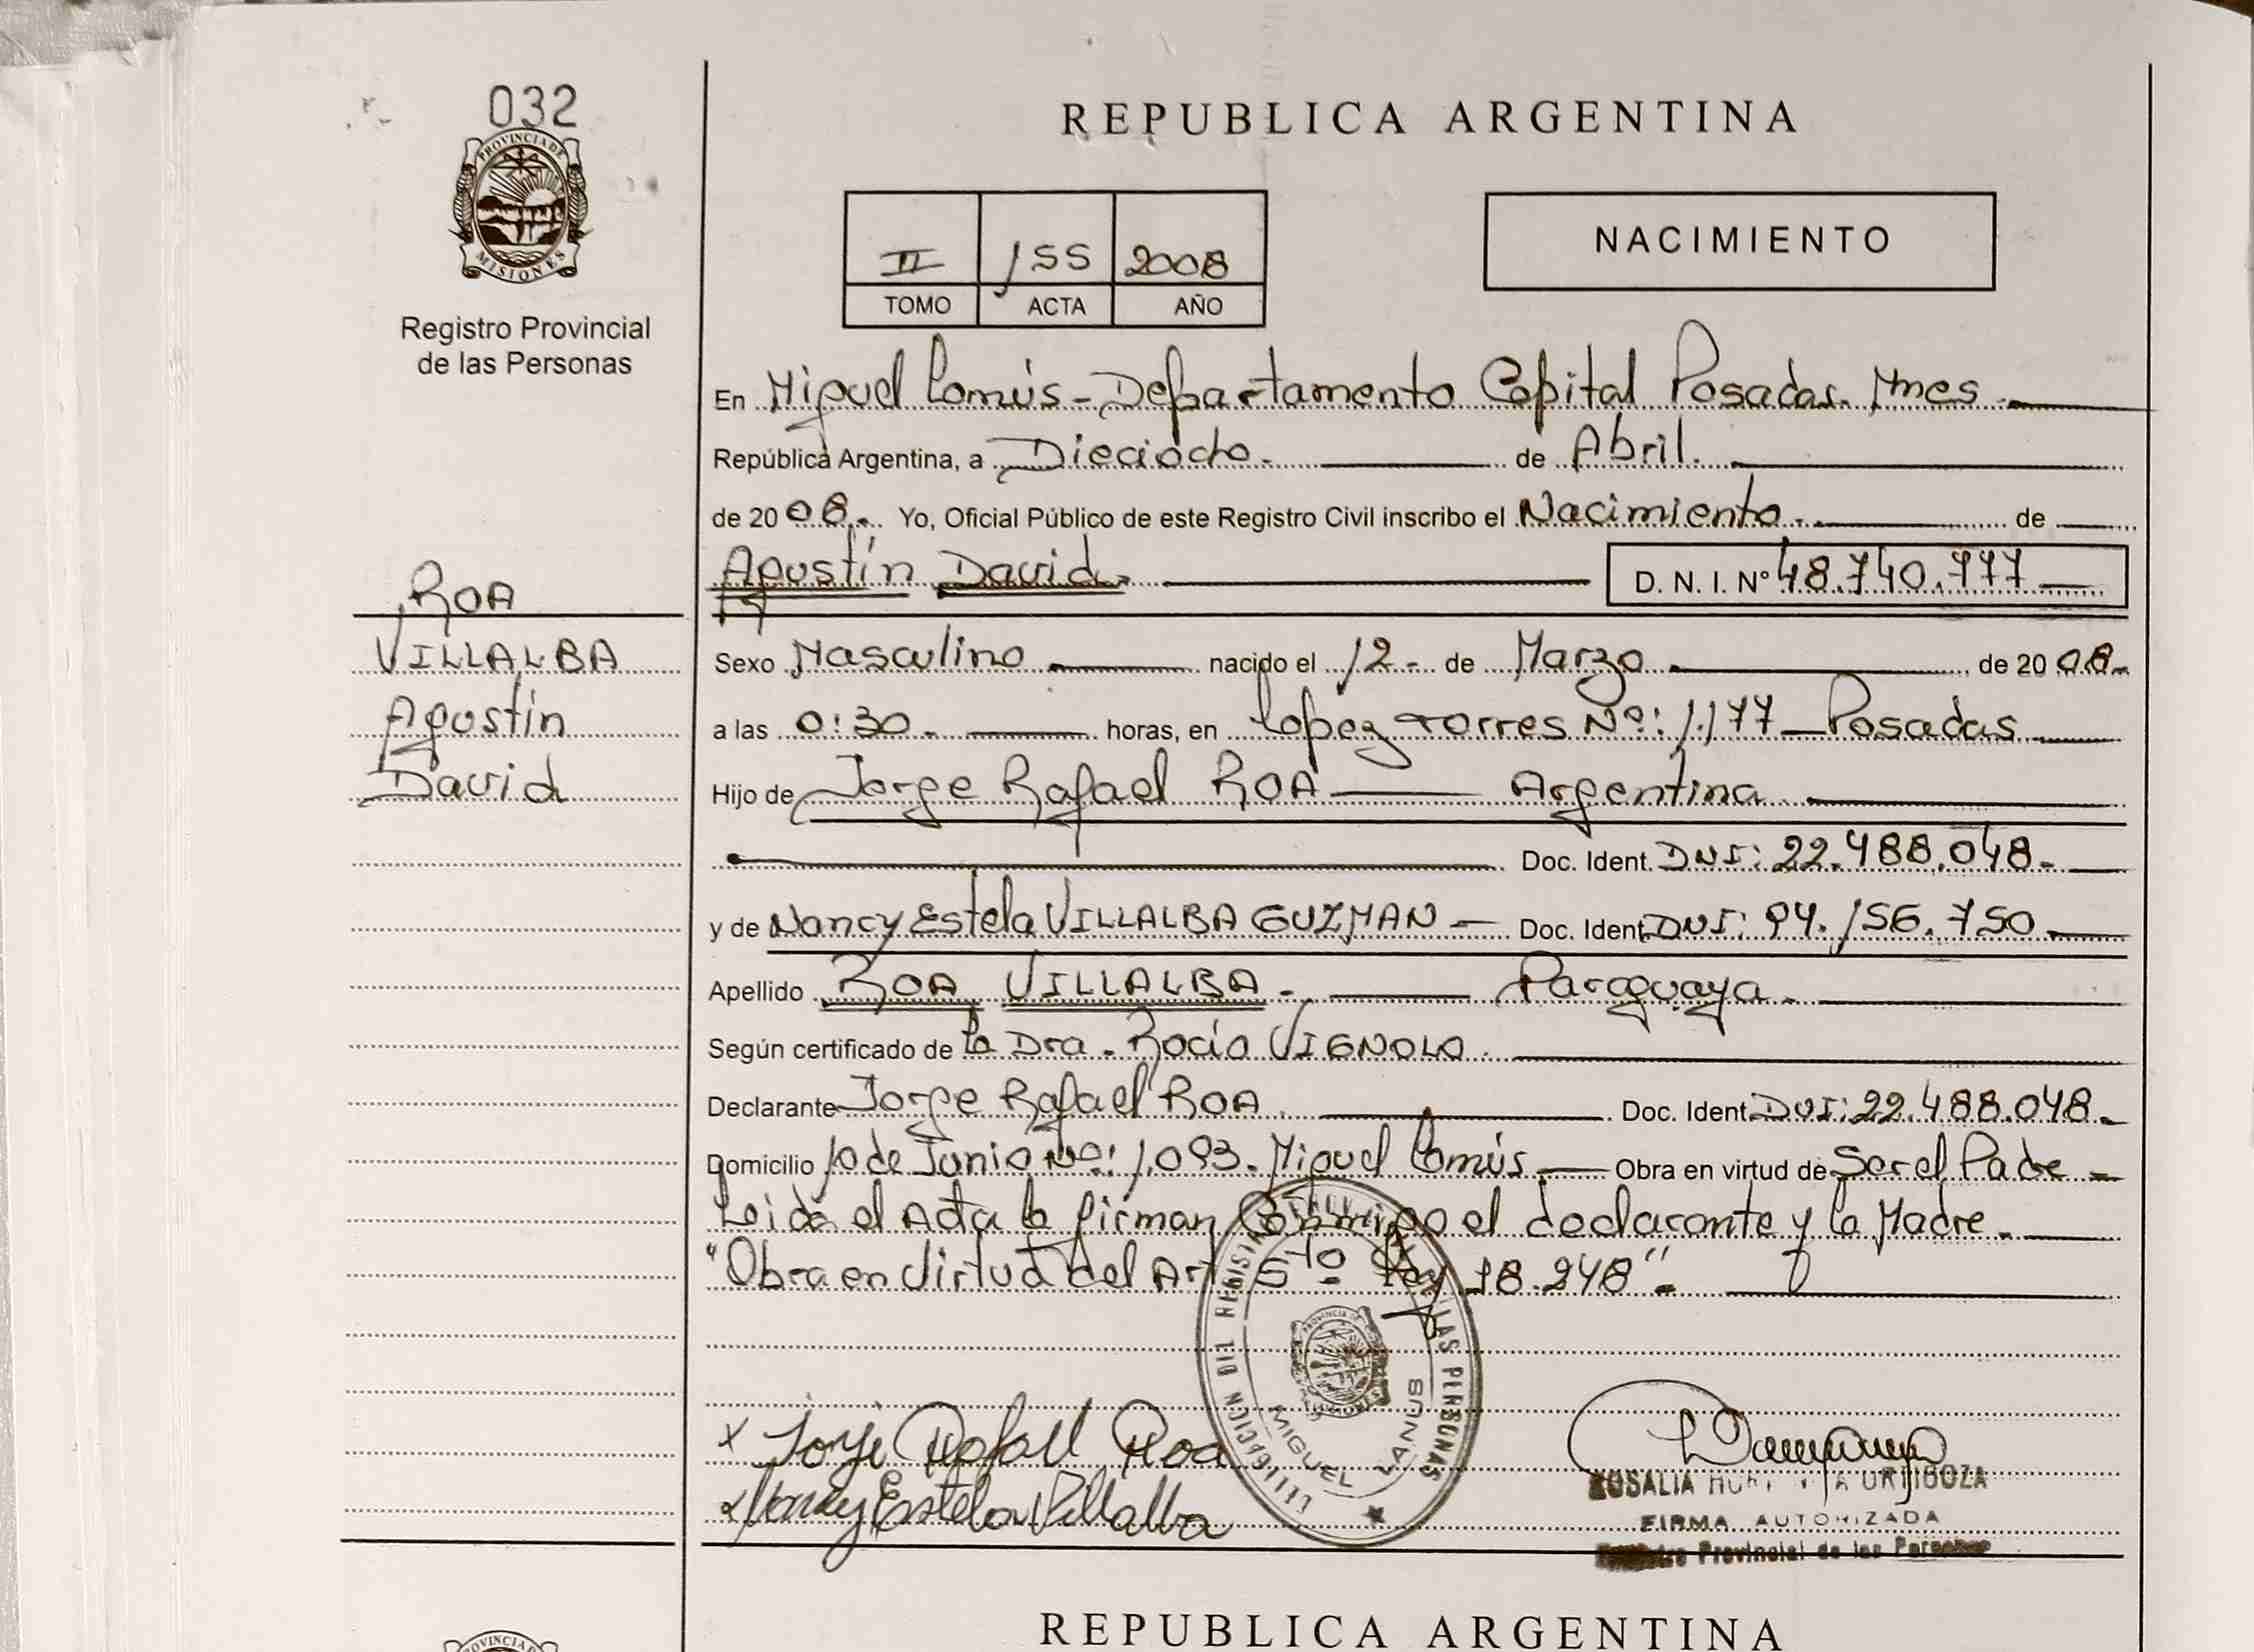 032
PROVINCIA DE
MISIONES
Registro Provincial
de las Personas
REPUBLICA ARGENTINA
II 155 2008
TOMO ACTA AÑO
NACIMIENTO
En Miguel Lanús - Departamento Capital Posadas. Mnes
República Argentina, a Dieciocho. de Abril.
de 2008. Yo, Oficial Público de este Registro Civil inscribo el Nacimiento. de
Agustín David. D. N. I. Nº 48.740.777
ROA
VILLALBA
Agustín
David
Sexo Masculino nacido el 12 - de Marzo de 2008.
a las 0:30. horas, en Lopez Torres Nº: 1.177 - Posadas
Hijo de Jorge Rafael ROA Argentina
Doc. Ident. DNI: 22.488.048.
y de Nancy Estela VILLALBA GUZMAN - Doc. Ident. DNI: 94.156.750
Apellido ROA VILLALBA. - Paraguaya.
Según certificado de la Dra. Rocío VIGNOLO.
Declarante Jorge Rafael ROA. Doc. Ident. DNI: 22.488.048.
Domicilio 10 de Junio Nº: 1.093. Miguel Lanús Obra en virtud de Ser el Padre -
Leida el Acta la firman Conmigo el declarante y la Madre.
"Obra en virtud del Art 5to Ley 18.248"
Jorge Rafael Roa
Nancy Estela Villalba
DELEGACION DEL REGISTRO LAS PERSONAS
MIGUEL LANUS
ROSALIA URIBOZA
FIRMA AUTORIZADA
Registro Provincial de las Personas
REPUBLICA ARGENTINA